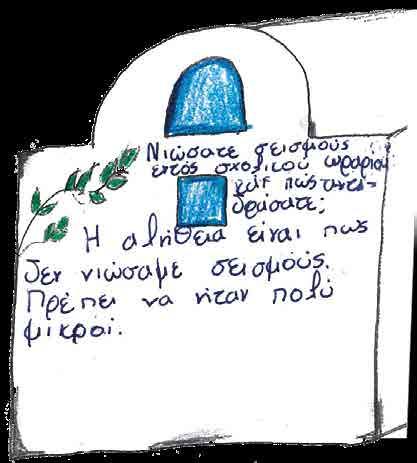 Νιώσατε σεισμούς
εντός σχολικού ωραρίου
και πώς αντι-
δράσατε;
Η αλήθεια είναι πως
δεν νιώσαμε σεισμούς.
Πρέπει να ήταν πολύ
μικροί.